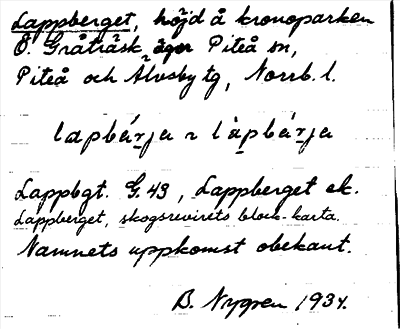 Lappberget, höjd å kronoparken
Ö. Gråträsk, Piteå sn,
Piteå och Älvsby tg, Norrb. l.
lapbárja ~ làpbárja
Lappbgt. G. 43, Lappberget ek.
Lappberget, skogsrevirets block-karta.
Namnets uppkomst obekant.
B. Nygren 1934.